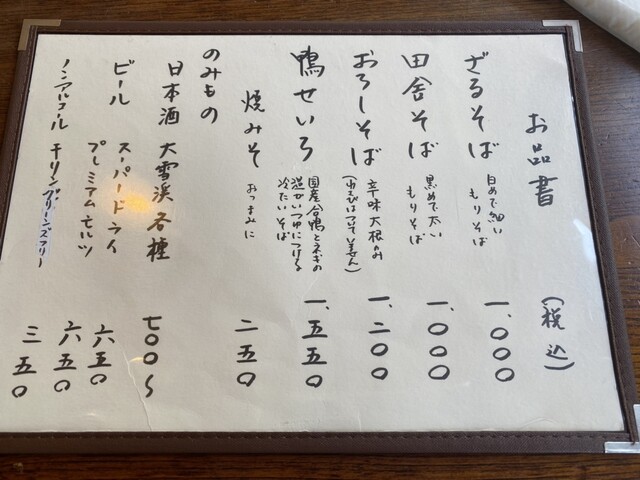 お品書
(税込)
ざるそば 白めで細いもりそば 一、〇〇〇
田舎そば 黒めで太いもりそば 一、〇〇〇
おろしそば 辛味大根のみ(わさびはつきません) 一、二〇〇
鴨せいろ 国産合鴨とネギの温かいつゆにつける冷たいそば 一、五五〇
焼みそ おつまみに 二五〇
のみもの
日本酒 大雪渓各種 七〇〇〜
ビール スーパードライ 六五〇
プレミアムモルツ 六五〇
ノンアルコール キリングリーンズフリー 三五〇